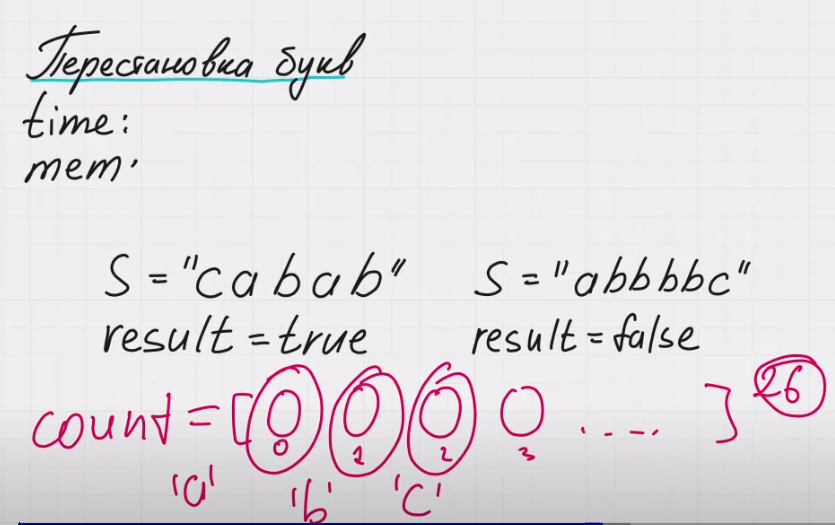 Перестановка букв
time:
mem:
S = "cabab"
result = true
S = "abbbbc"
result = false
count = [0 0 0 0 ....] 26
0 1 2 3
'a' 'b' 'c'